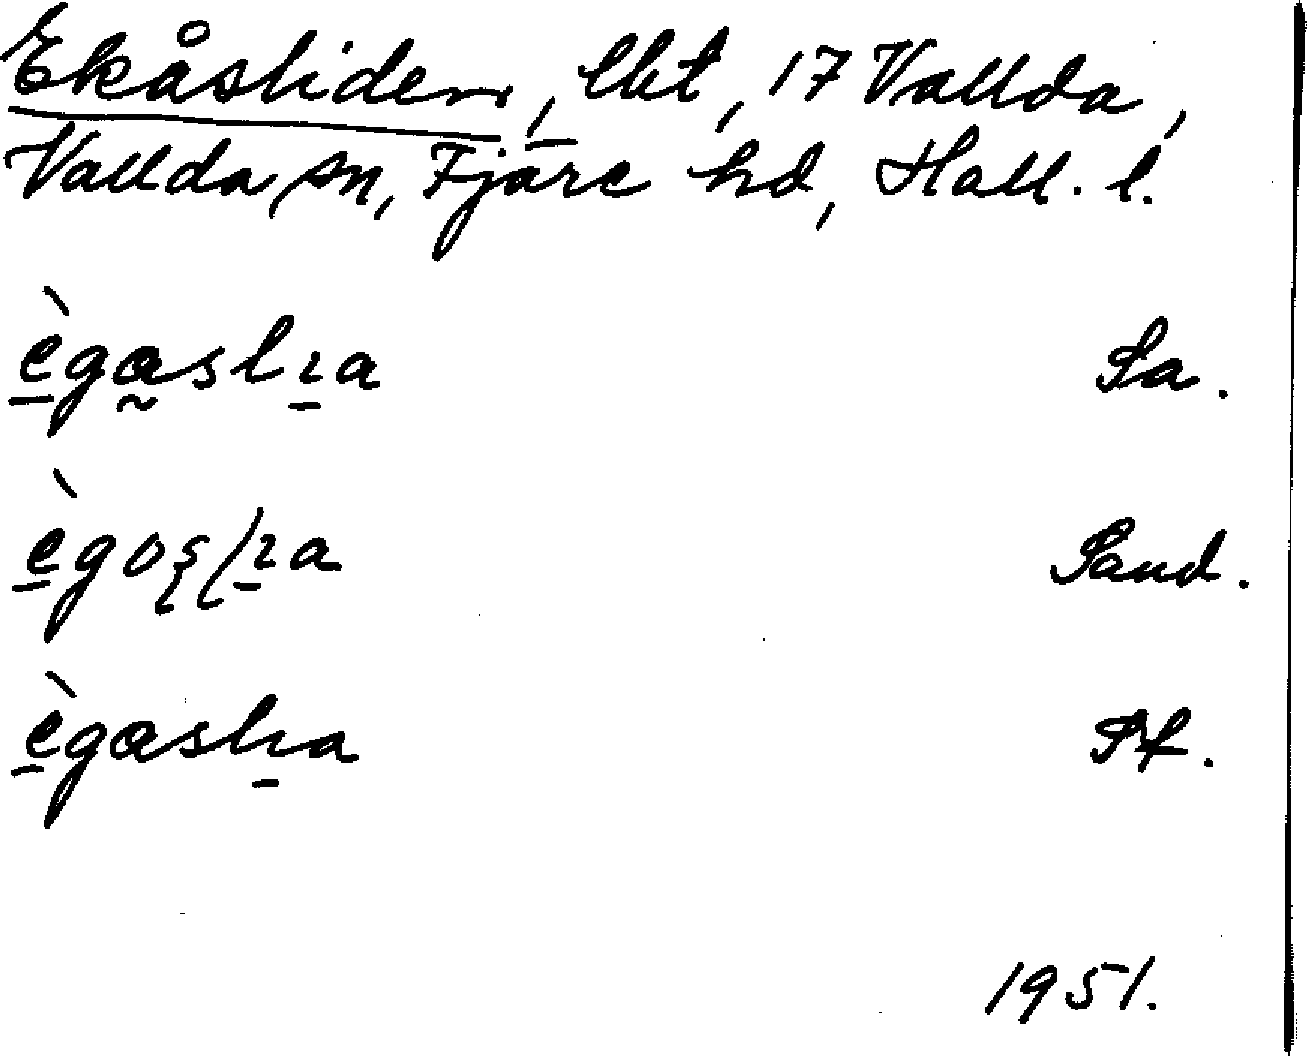 Ekåsliden, lht, 17 Vallda,
Vallda sn, Fjäre hd, Hall. l.
ègɑslɿa Sa.
ègoslɿa Sand.
ègɑslɿa Pf.
1951.